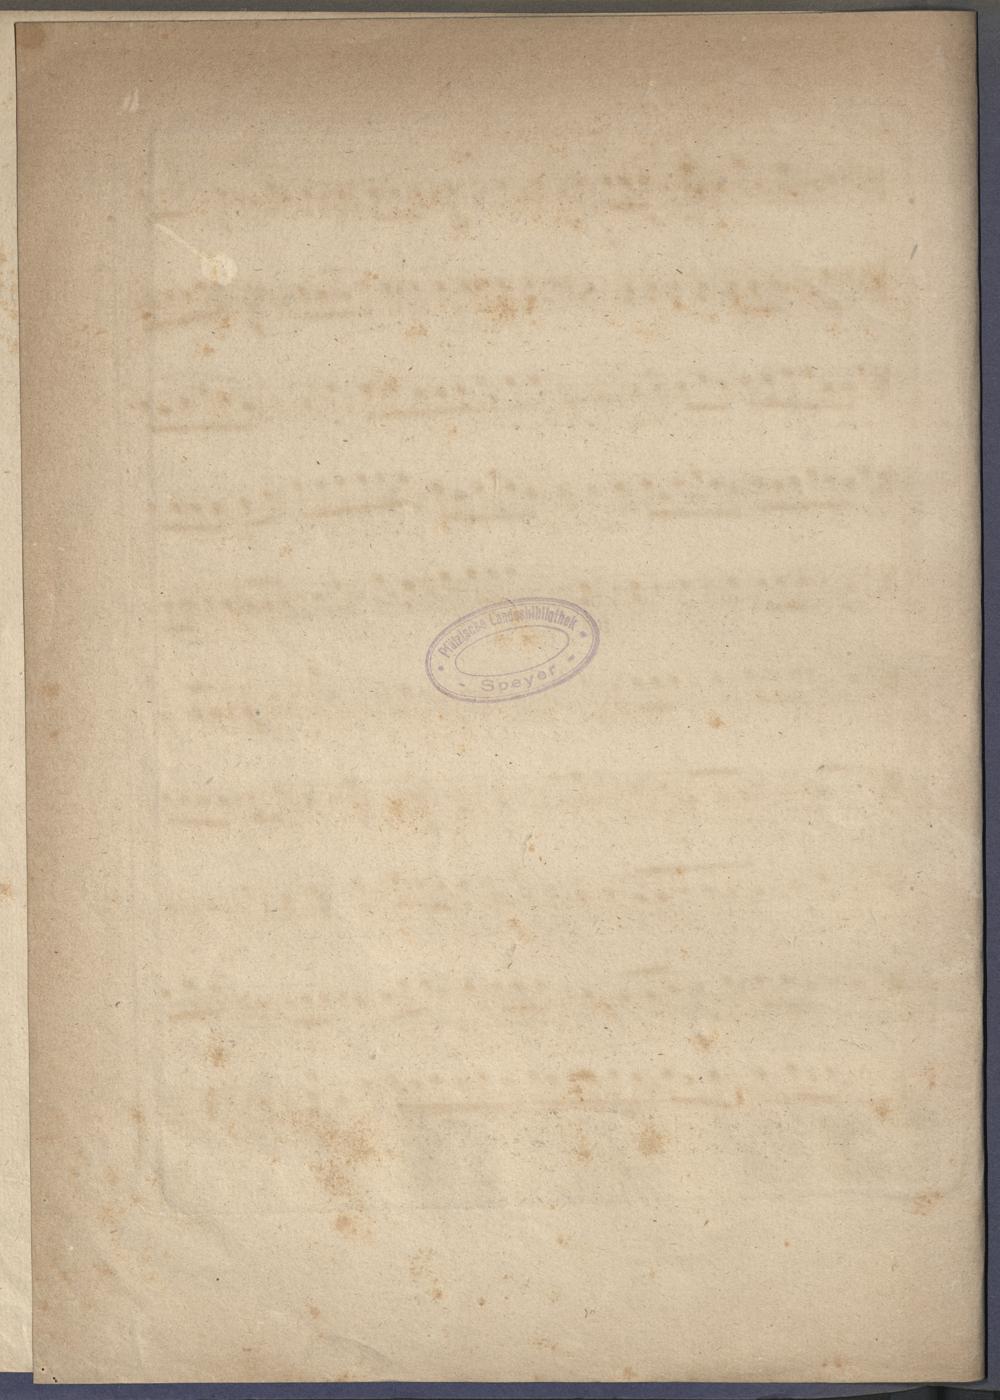 Pfälzische Landesbibliothek
- Speyer -